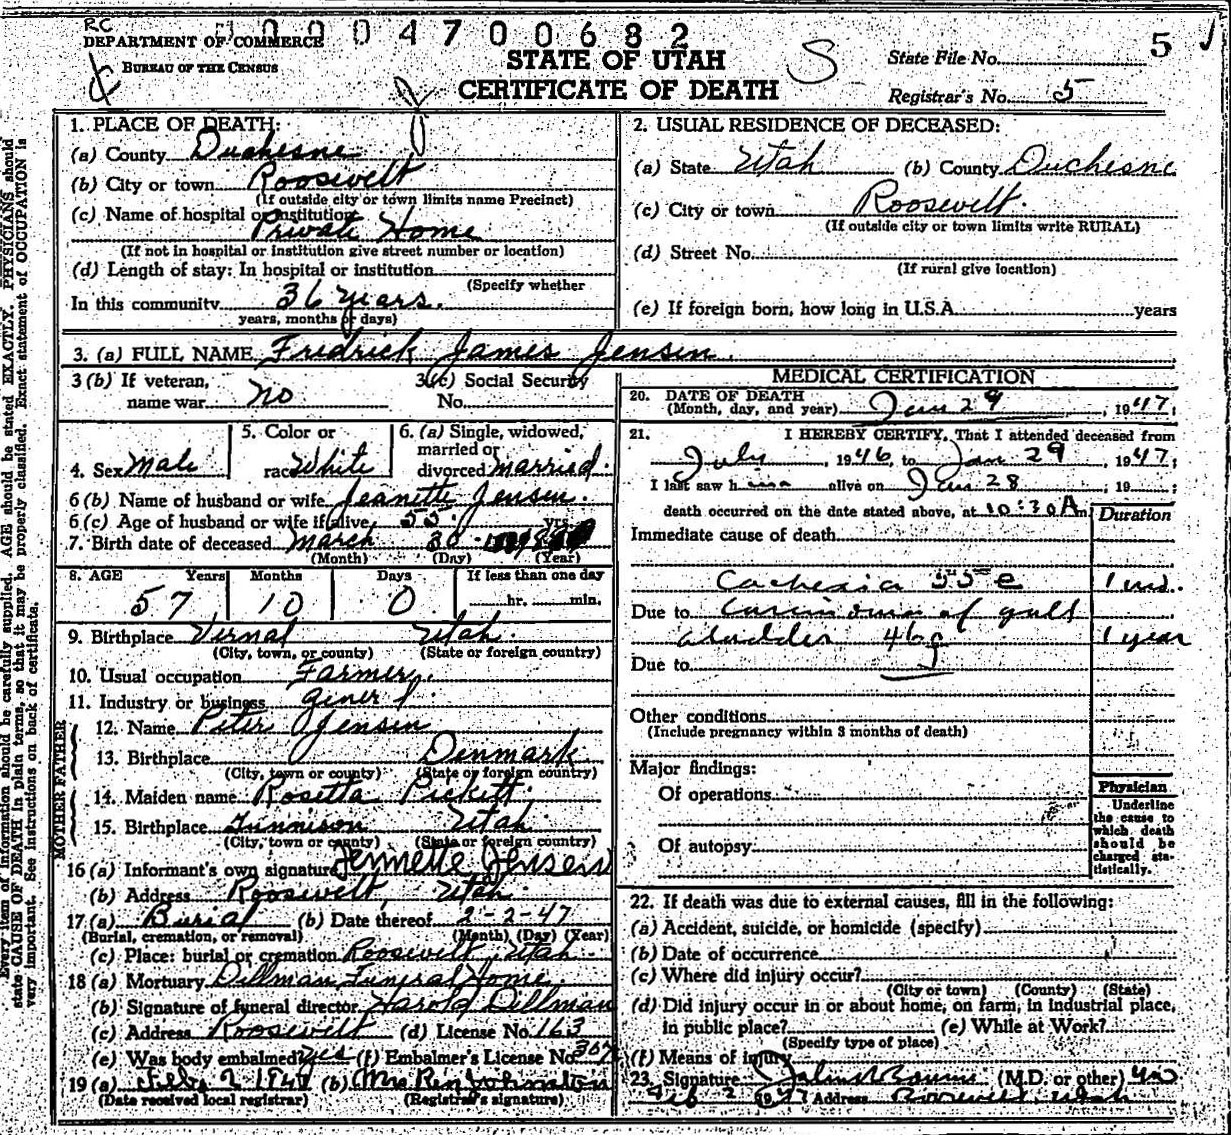 RC
1000470 0682
DEPARTMENT OF COMMERCE
BUREAU OF THE CENSUS
STATE OF UTAH
CERTIFICATE OF DEATH
S
State File No. 5
Registrar's No. 5
1. PLACE OF DEATH:
(a) County Duchesne
(b) City or town Roosevelt
(If outside city or town limits name Precinct)
(c) Name of hospital or institution
Private Home
(If not in hospital or institution give street number or location)
(d) Length of stay: In hospital or institution
(Specify whether
In this community 36 years.
years, months or days)
2. USUAL RESIDENCE OF DECEASED:
(a) State Utah (b) County Duchesne
(c) City or town Roosevelt.
(If outside city or town limits write RURAL)
(d) Street No.
(If rural give location)
(e) If foreign born, how long in U.S.A. years
3. (a) FULL NAME Fredrick James Jensen.
3 (b) If veteran, name war no
3 (c) Social Security No.
4. Sex Male
5. Color or race White
6. (a) Single, widowed, married or divorced married.
6 (b) Name of husband or wife Jeanette Jensen.
6 (c) Age of husband or wife if alive 55 yrs.
7. Birth date of deceased March 30
(Month) (Day) (Year)
8. AGE Years Months Days If less than one day
57 10 0 hr. min.
9. Birthplace Vernal Utah.
(City, town, or county) (State or foreign country)
10. Usual occupation Farmer.
11. Industry or business
FATHER
12. Name Peter Jensen
13. Birthplace Denmark
(City, town or county) (State or foreign country)
MOTHER
14. Maiden name Rosetta Pickett.
15. Birthplace Gunnison Utah.
(City, town or county) (State or foreign country)
16 (a) Informant's own signature Jennette Jensen
(b) Address Roosevelt, Utah.
17 (a) Burial (b) Date thereof 2-2-47
(Burial, cremation, or removal) (Month) (Day) (Year)
(c) Place: burial or cremation Roosevelt, Utah.
18 (a) Mortuary Dillman Funeral Home.
(b) Signature of funeral director Harold Dillman
(c) Address Roosevelt (d) License No. 163
(e) Was body embalmed? yes (f) Embalmer's License No. 307
19 (a) Feb. 2 1947 (b) Mrs Johnston
(Date received local registrar) (Registrar's signature)
MEDICAL CERTIFICATION
20. DATE OF DEATH
(Month, day, and year) Jan 29, 1947;
21. I HEREBY CERTIFY, That I attended deceased from
July, 1946, to Jan 29, 1947;
I last saw him alive on Jan 28, 19
death occurred on the date stated above, at 10:30 A m.
Duration
Immediate cause of death
Cachexia 55 e 1 mo.
Due to Carcinoma of gall
bladder 46 g 1 year
Due to
Other conditions
(Include pregnancy within 3 months of death)
Major findings:
Of operations
Of autopsy
Physician
Underline
the cause to
which death
should be
charged sta-
tistically.
22. If death was due to external causes, fill in the following:
(a) Accident, suicide, or homicide (specify)
(b) Date of occurrence
(c) Where did injury occur?
(City or town) (County) (State)
(d) Did injury occur in or about home, on farm, in industrial place,
in public place? (e) While at Work?
(Specify type of place)
(f) Means of injury
23. Signature (M.D. or other)
Feb 2 1947 Address Roosevelt, Utah
Every item of information should be carefully supplied. AGE should be stated EXACTLY. PHYSICIANS should
state CAUSE OF DEATH in plain terms, so that it may be properly classified. Exact statement of OCCUPATION is
very important. See instructions on back of certificate.